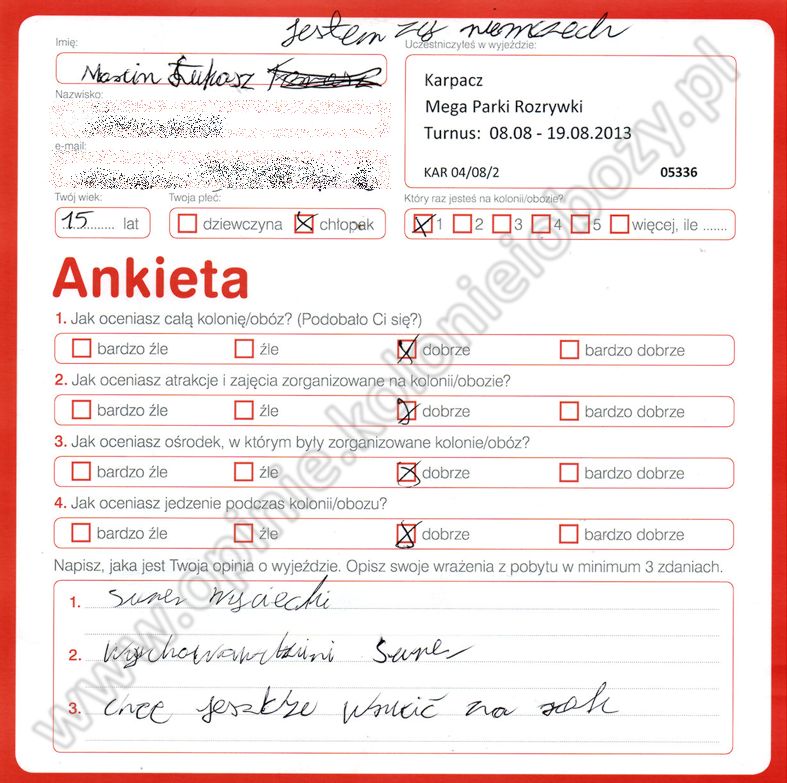 jestem zy niemczech
Imię:
Uczestniczyłeś w wyjeździe:
Marcin Łukasz
Karpacz
Mega Parki Rozrywki
Turnus: 08.08 - 19.08.2013
KAR 04/08/2
05336
Nazwisko:
e-mail:
Twój wiek:
Twoja płeć:
Który raz jesteś na kolonii/obozie?
15 ........ lat
dziewczyna
chłopak
1 2 3 4 5 więcej, ile .......
Ankieta
1. Jak oceniasz całą kolonię/obóz? (Podobało Ci się?)
bardzo źle źle dobrze bardzo dobrze
2. Jak oceniasz atrakcje i zajęcia zorganizowane na kolonii/obozie?
bardzo źle źle dobrze bardzo dobrze
3. Jak oceniasz ośrodek, w którym były zorganizowane kolonie/obóz?
bardzo źle źle dobrze bardzo dobrze
4. Jak oceniasz jedzenie podczas kolonii/obozu?
bardzo źle źle dobrze bardzo dobrze
Napisz, jaka jest Twoja opinia o wyjeździe. Opisz swoje wrażenia z pobytu w minimum 3 zdaniach.
1. super wyciecki
2. wychowawczini super
3. chcę jeszkze wrucić za rok
www.opinie.kolonieiobozy.pl